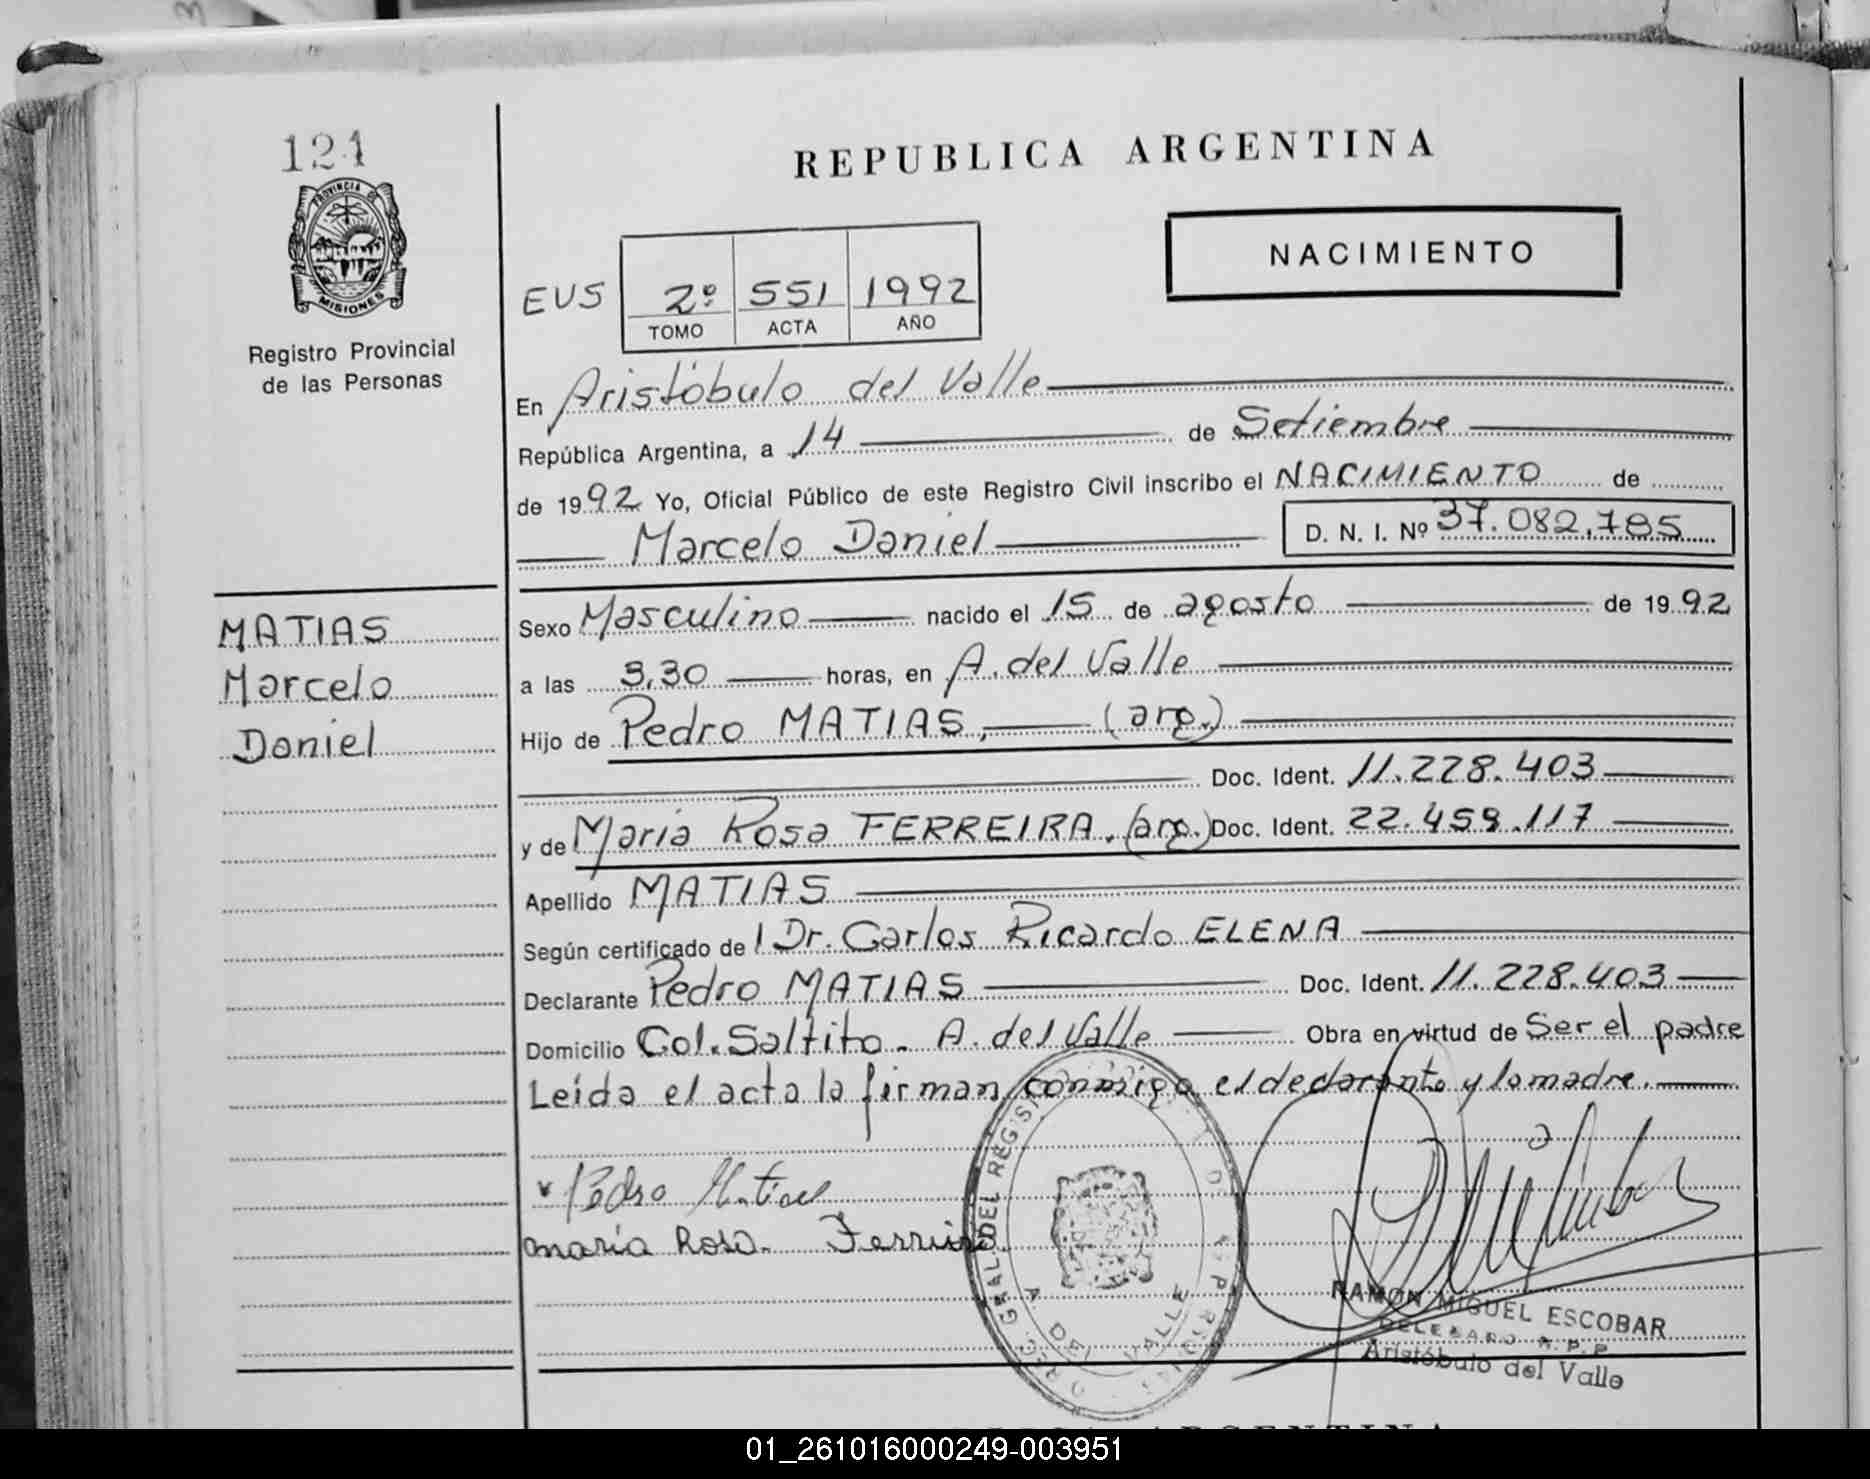 121
PROVINCIA DE
MISIONES
Registro Provincial
de las Personas
REPUBLICA ARGENTINA
NACIMIENTO
EUS 2º 551 1992
TOMO ACTA AÑO
En Aristóbulo del Valle
República Argentina, a 14 de Setiembre
de 1992 Yo, Oficial Público de este Registro Civil inscribo el NACIMIENTO de
Marcelo Daniel D. N. I. Nº 37.082.785
MATIAS
Marcelo
Daniel
Sexo Masculino nacido el 15 de agosto de 1992
a las 3,30 horas, en A. del Valle
Hijo de Pedro MATIAS, (arg.)
Doc. Ident. 11.228.403
y de Maria Rosa FERREIRA. (arg.) Doc. Ident. 22.459.117
Apellido MATIAS
Según certificado de l Dr. Carlos Ricardo ELENA
Declarante Pedro MATIAS Doc. Ident. 11.228.403
Domicilio Col. Saltito - A. del Valle Obra en virtud de Ser el padre
Leida el acta la firman conmigo el declarante y la madre.
Pedro Matias
maria Rosa. Ferreira
DIREC. GRAL. DEL REGIST
A DEL VALLE
RAMON MIGUEL ESCOBAR
DELEGADO R.P.P
Aristóbulo del Valle
ARGENTINA
01_261016000249-003951